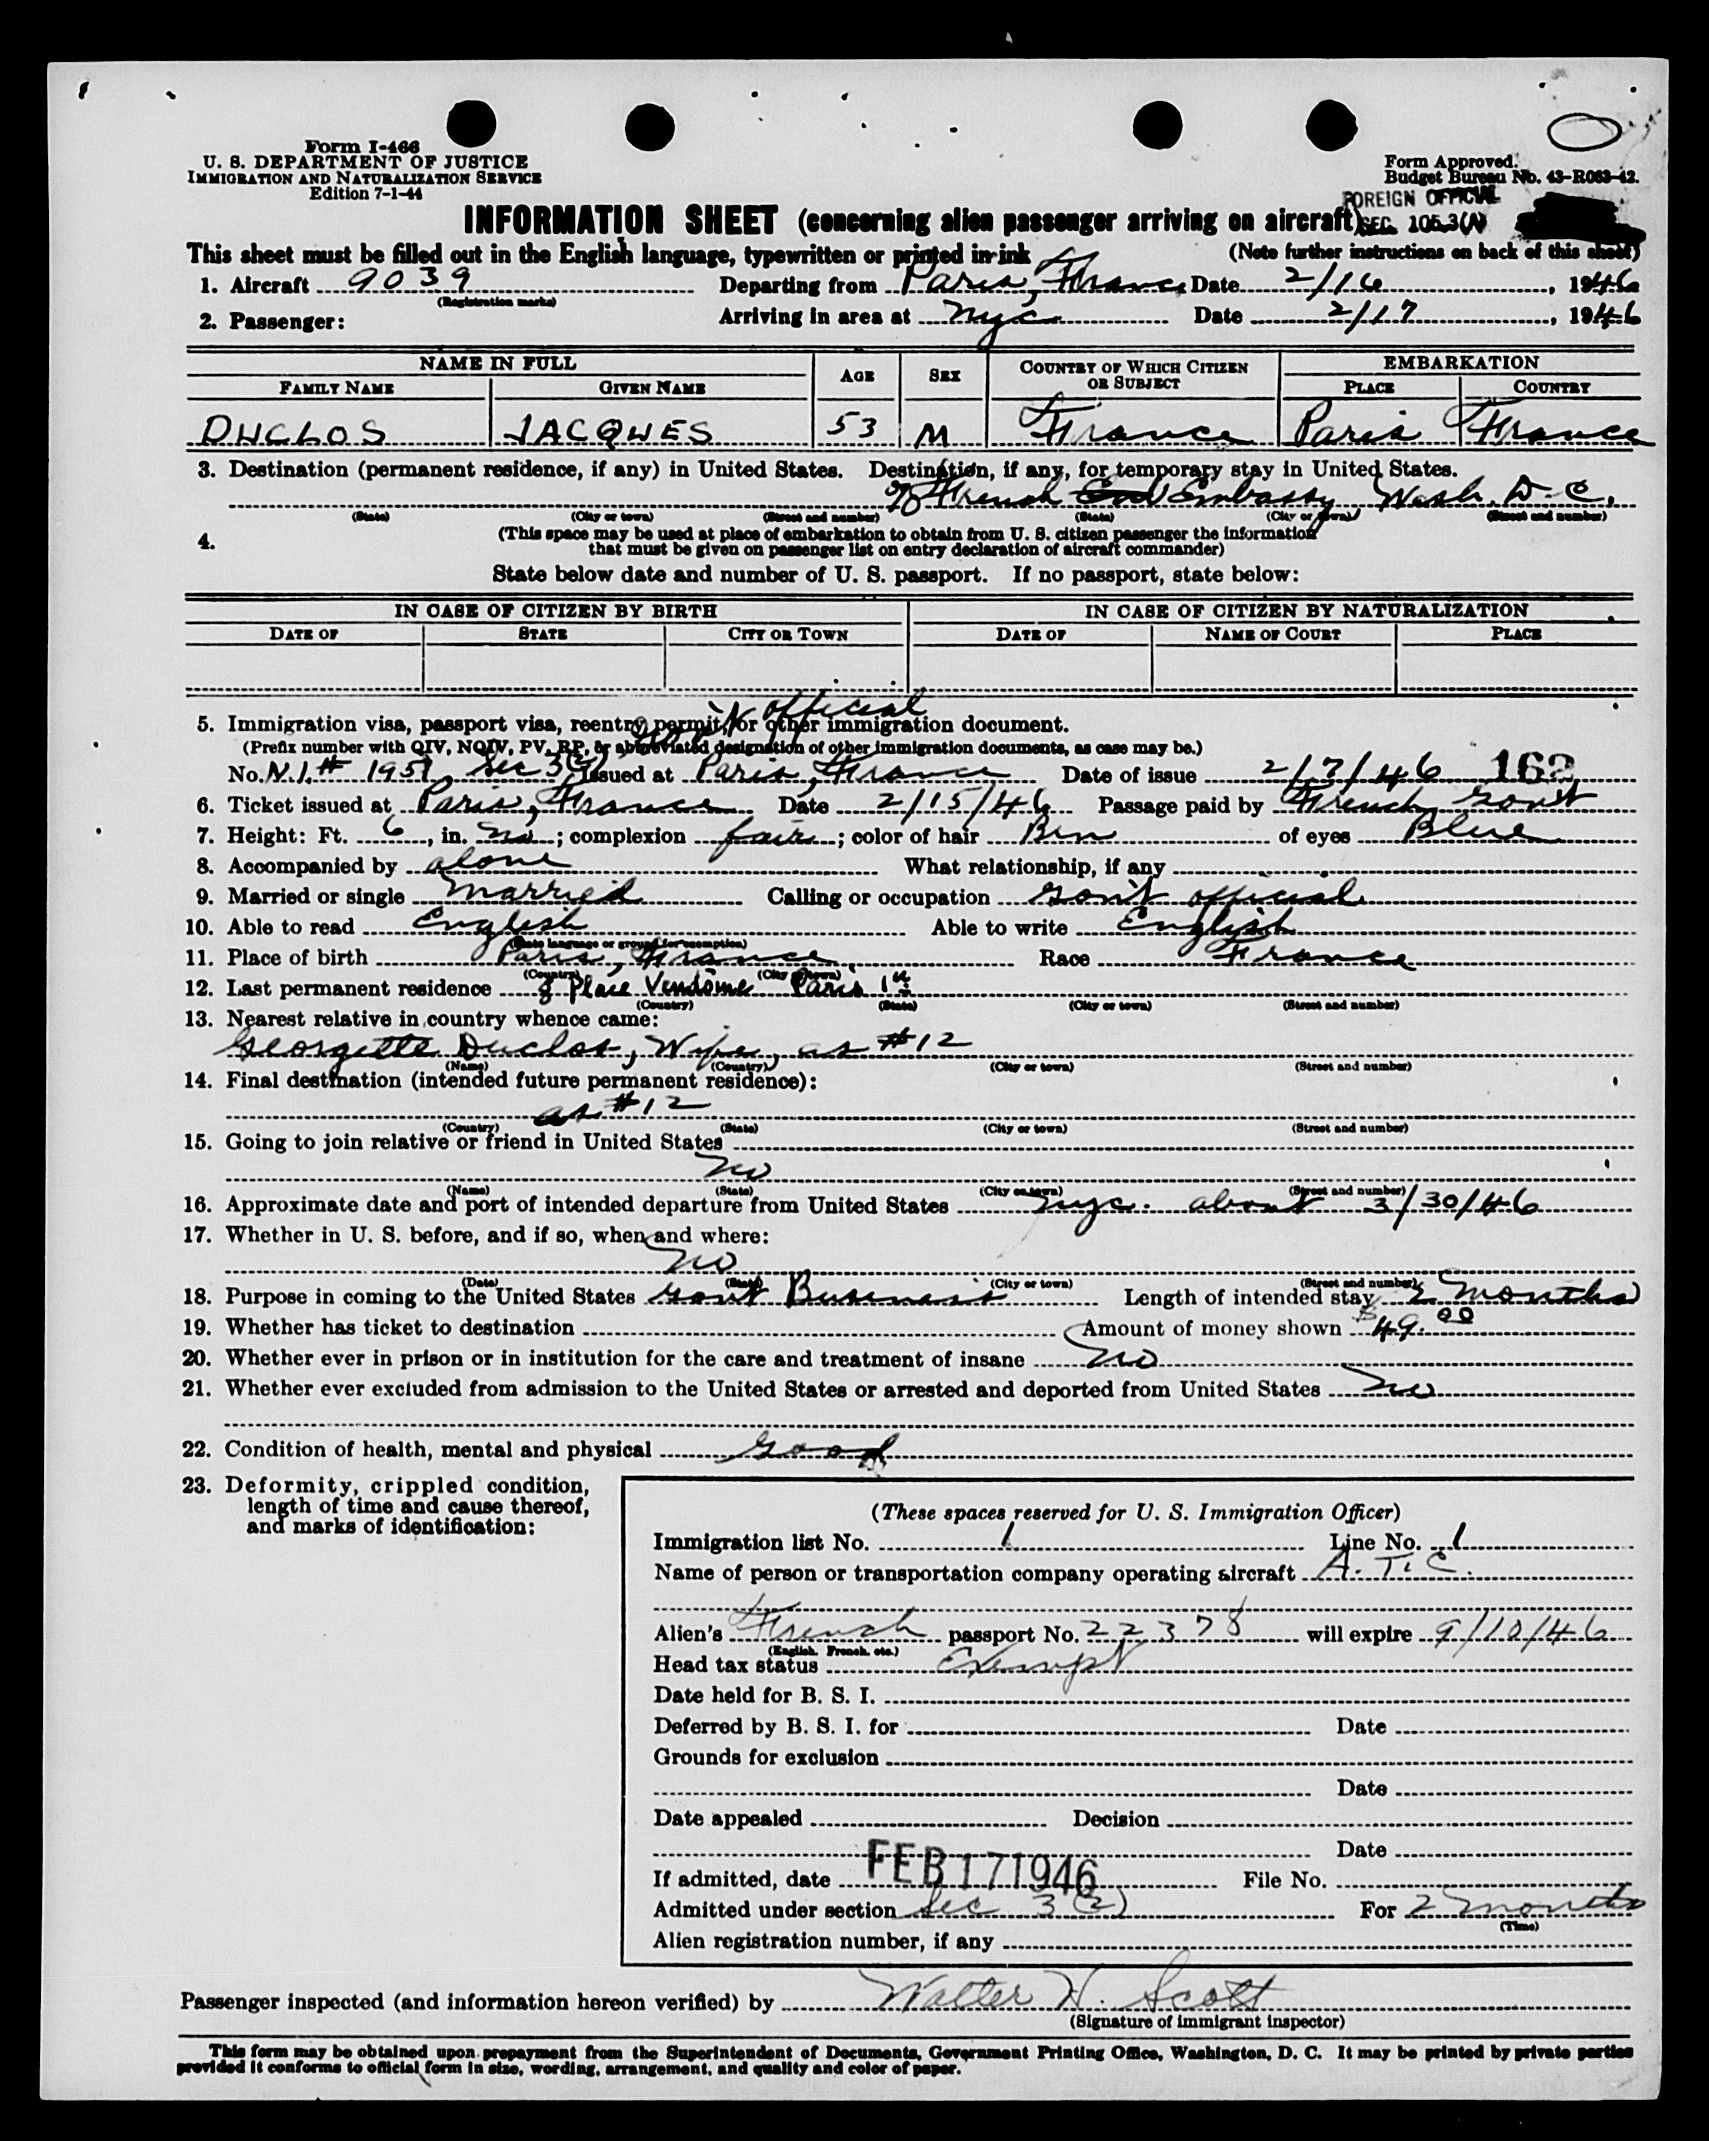 Form I-466
U. S. DEPARTMENT OF JUSTICE
IMMIGRATION AND NATURALIZATION SERVICE
Edition 7-1-44
Form Approved.
Budget Bureau No. 43-R063-42.
FOREIGN OFFICIAL
SEC. 105.3(A)
INFORMATION SHEET (concerning alien passenger arriving on aircraft)
This sheet must be filled out in the English language, typewritten or printed in ink (Note further instructions on back of this sheet)
1. Aircraft 9039 Departing from Paris, France Date 2/16, 1946
(Registration marks)
2. Passenger: Arriving in area at NYC Date 2/17, 1946
NAME IN FULL AGE SEX COUNTRY OF WHICH CITIZEN OR SUBJECT EMBARKATION
FAMILY NAME GIVEN NAME PLACE COUNTRY
DUCLOS JACQUES 53 M France Paris France
3. Destination (permanent residence, if any) in United States. Destination, if any, for temporary stay in United States.
French Embassy Wash. D.C.
(State) (City or town) (Street and number) (State) (City or town) (Street and number)
4. (This space may be used at place of embarkation to obtain from U. S. citizen passenger the information
that must be given on passenger list on entry declaration of aircraft commander)
State below date and number of U. S. passport. If no passport, state below:
IN CASE OF CITIZEN BY BIRTH IN CASE OF CITIZEN BY NATURALIZATION
DATE OF STATE CITY OR TOWN DATE OF NAME OF COURT PLACE
official
5. Immigration visa, passport visa, reentry permit, or other immigration document.
(Prefix number with QIV, NQIV, PV, RP, or abbreviated designation of other immigration documents, as case may be.)
No. N.I.# 1951, Sec 3(2), Issued at Paris, France Date of issue 2/7/46 162
6. Ticket issued at Paris, France Date 2/15/46 Passage paid by French Gov't
7. Height: Ft. 6, in. no; complexion fair; color of hair Brn of eyes Blue
8. Accompanied by alone What relationship, if any
9. Married or single Married Calling or occupation Gov't official
10. Able to read English Able to write English
(State language or ground for exemption)
11. Place of birth Paris, France Race France
(Country) (City or town)
12. Last permanent residence 8 Place Vendôme Paris 1er
(Country) (State) (City or town) (Street and number)
13. Nearest relative in country whence came:
Georgette Duclos, Wife, as #12
(Name) (Country) (City or town) (Street and number)
14. Final destination (intended future permanent residence):
as #12
(Country) (State) (City or town) (Street and number)
15. Going to join relative or friend in United States
no
(Name) (State) (City or town) (Street and number)
16. Approximate date and port of intended departure from United States NYC. about 3/30/46
17. Whether in U. S. before, and if so, when and where:
no
(Date) (State) (City or town) (Street and number)
18. Purpose in coming to the United States Gov't Business Length of intended stay 2 months
19. Whether has ticket to destination Amount of money shown $49.00
20. Whether ever in prison or in institution for the care and treatment of insane no
21. Whether ever excluded from admission to the United States or arrested and deported from United States no
22. Condition of health, mental and physical good
23. Deformity, crippled condition,
length of time and cause thereof,
and marks of identification:
(These spaces reserved for U. S. Immigration Officer)
Immigration list No. 1 Line No. 1
Name of person or transportation company operating aircraft A.T.C.
Alien's French passport No. 22378 will expire 9/10/46
(English, French, etc.)
Head tax status Exempt
Date held for B. S. I.
Deferred by B. S. I. for Date
Grounds for exclusion
Date
Date appealed Decision
Date
If admitted, date FEB 17 1946 File No.
Admitted under section Sec 3(2) For 2 months
(Time)
Alien registration number, if any
Passenger inspected (and information hereon verified) by Walter H. Scott
(Signature of immigrant inspector)
This form may be obtained upon prepayment from the Superintendent of Documents, Government Printing Office, Washington, D. C. It may be printed by private parties
provided it conforms to official form in size, wording, arrangement, and quality and color of paper.